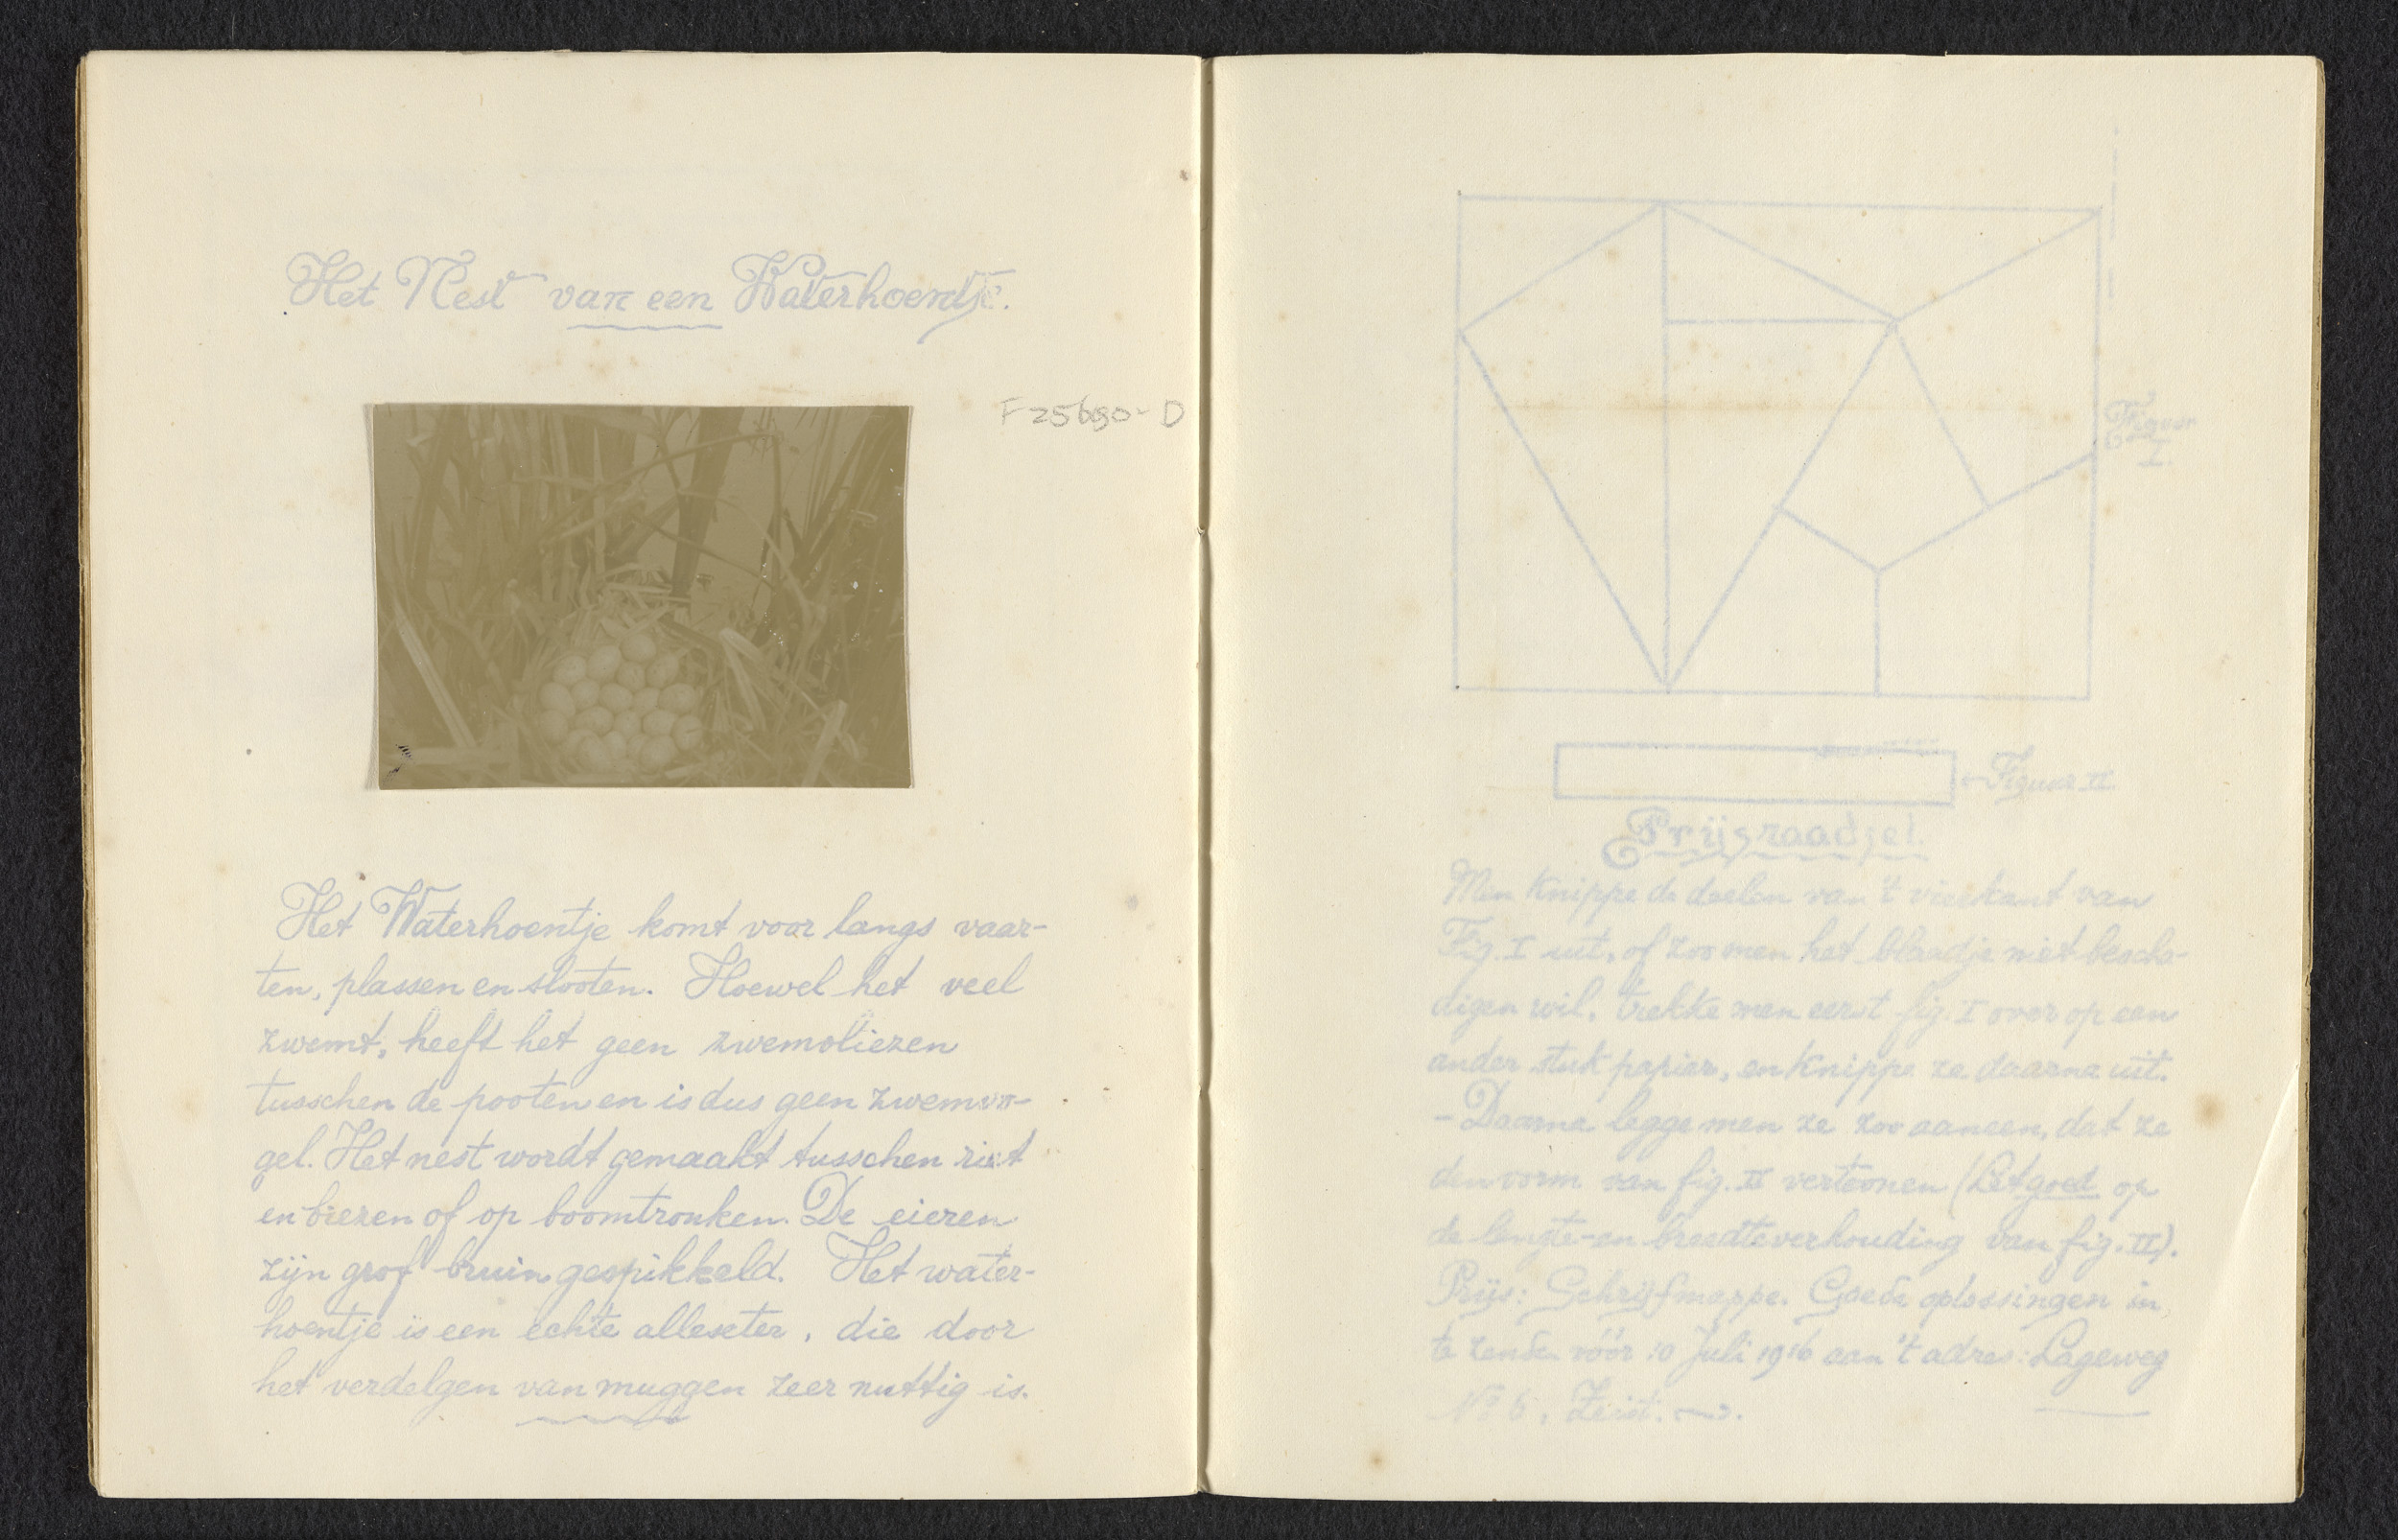 Het Nest van een Waterhoentje.
F 25690-D
Het Waterhoentje komt voor langs vaar-
ten, plassen en slooten. Hoewel het veel
zwemt, heeft het geen zwemvliezen
tusschen de pooten en is dus geen zwemvo-
gel. Het nest wordt gemaakt tusschen riet
en biezen of op boomtronken. De eieren
zijn grof bruin gespikkeld. Het water-
hoentje is een echte alleseter, die door
het verdelgen van muggen zeer nuttig is.
Figuur
I.
←Figuur II
Prijsraadsel
Men knippe de deelen van 't vierkant van
Fig. I uit, of zoo men het blaadje niet bescha-
digen wil, trekke men eerst fig. I over op een
ander stuk papier, en knippe ze daarna uit.
- Daarna legge men ze zoo aaneen, dat ze
den vorm van fig. II vertoonen (Let goed op
de lengte- en breedteverhouding van fig. II).
Prijs: Schrijfmappe. Goede oplossingen in
te zenden vóór 10 Juli 1916 aan 't adres: Lageweg
No 6, Zeist.